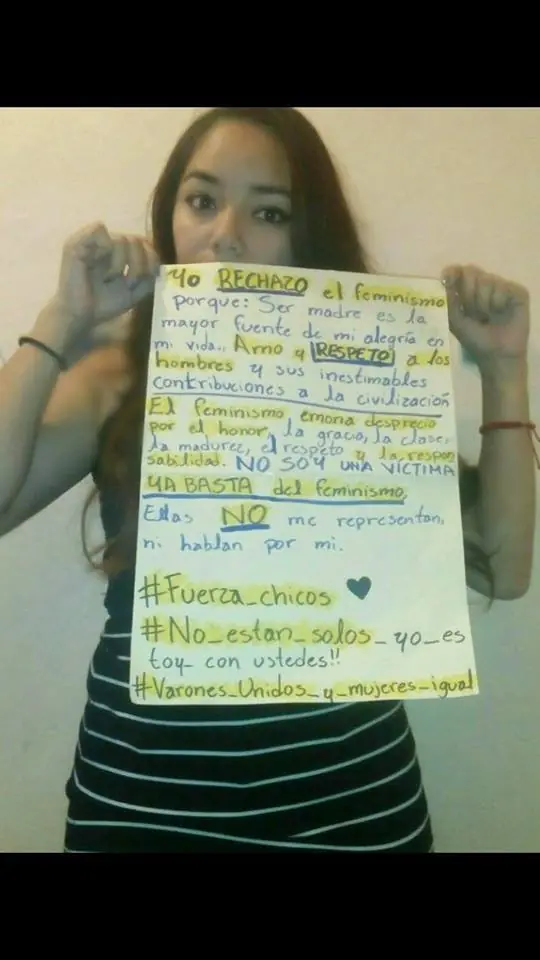 Yo RECHAZO el feminismo
porque: Ser madre es la
mayor fuente de mi alegría en
mi vida.. Amo y RESPETO a los
hombres y sus inestimables
contribuciones a la civilización
El feminismo emana desprecio
por el honor, la gracia, la clase,
la madurez, el respeto y la respon
sabilidad. NO SOY UNA VÍCTIMA
YA BASTA del feminismo.
Ellas NO me representan,
ni hablan por mi.
#Fuerza_chicos ♥
#No_estan_solos_yo_es
toy_con ustedes!!
#Varones_Unidos_y_mujeres_igual